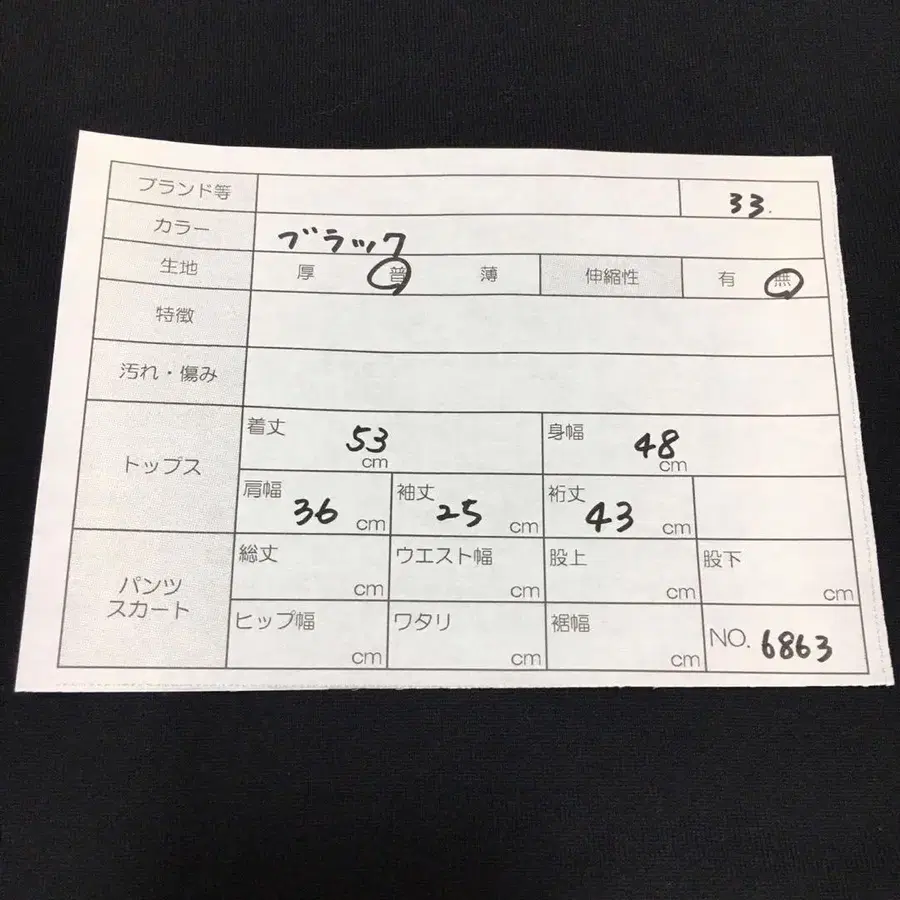 ブランド等 33.
カラー ブラック
生地 厚 普 薄 伸縮性 有 無
特徴
汚れ・傷み
トップス
着丈 53 cm 身幅 48 cm
肩幅 36 cm 袖丈 25 cm 裄丈 43 cm
パンツ
スカート
総丈 cm ウエスト幅 cm 股上 cm 股下 cm
ヒップ幅 cm ワタリ cm 裾幅 cm NO. 6863